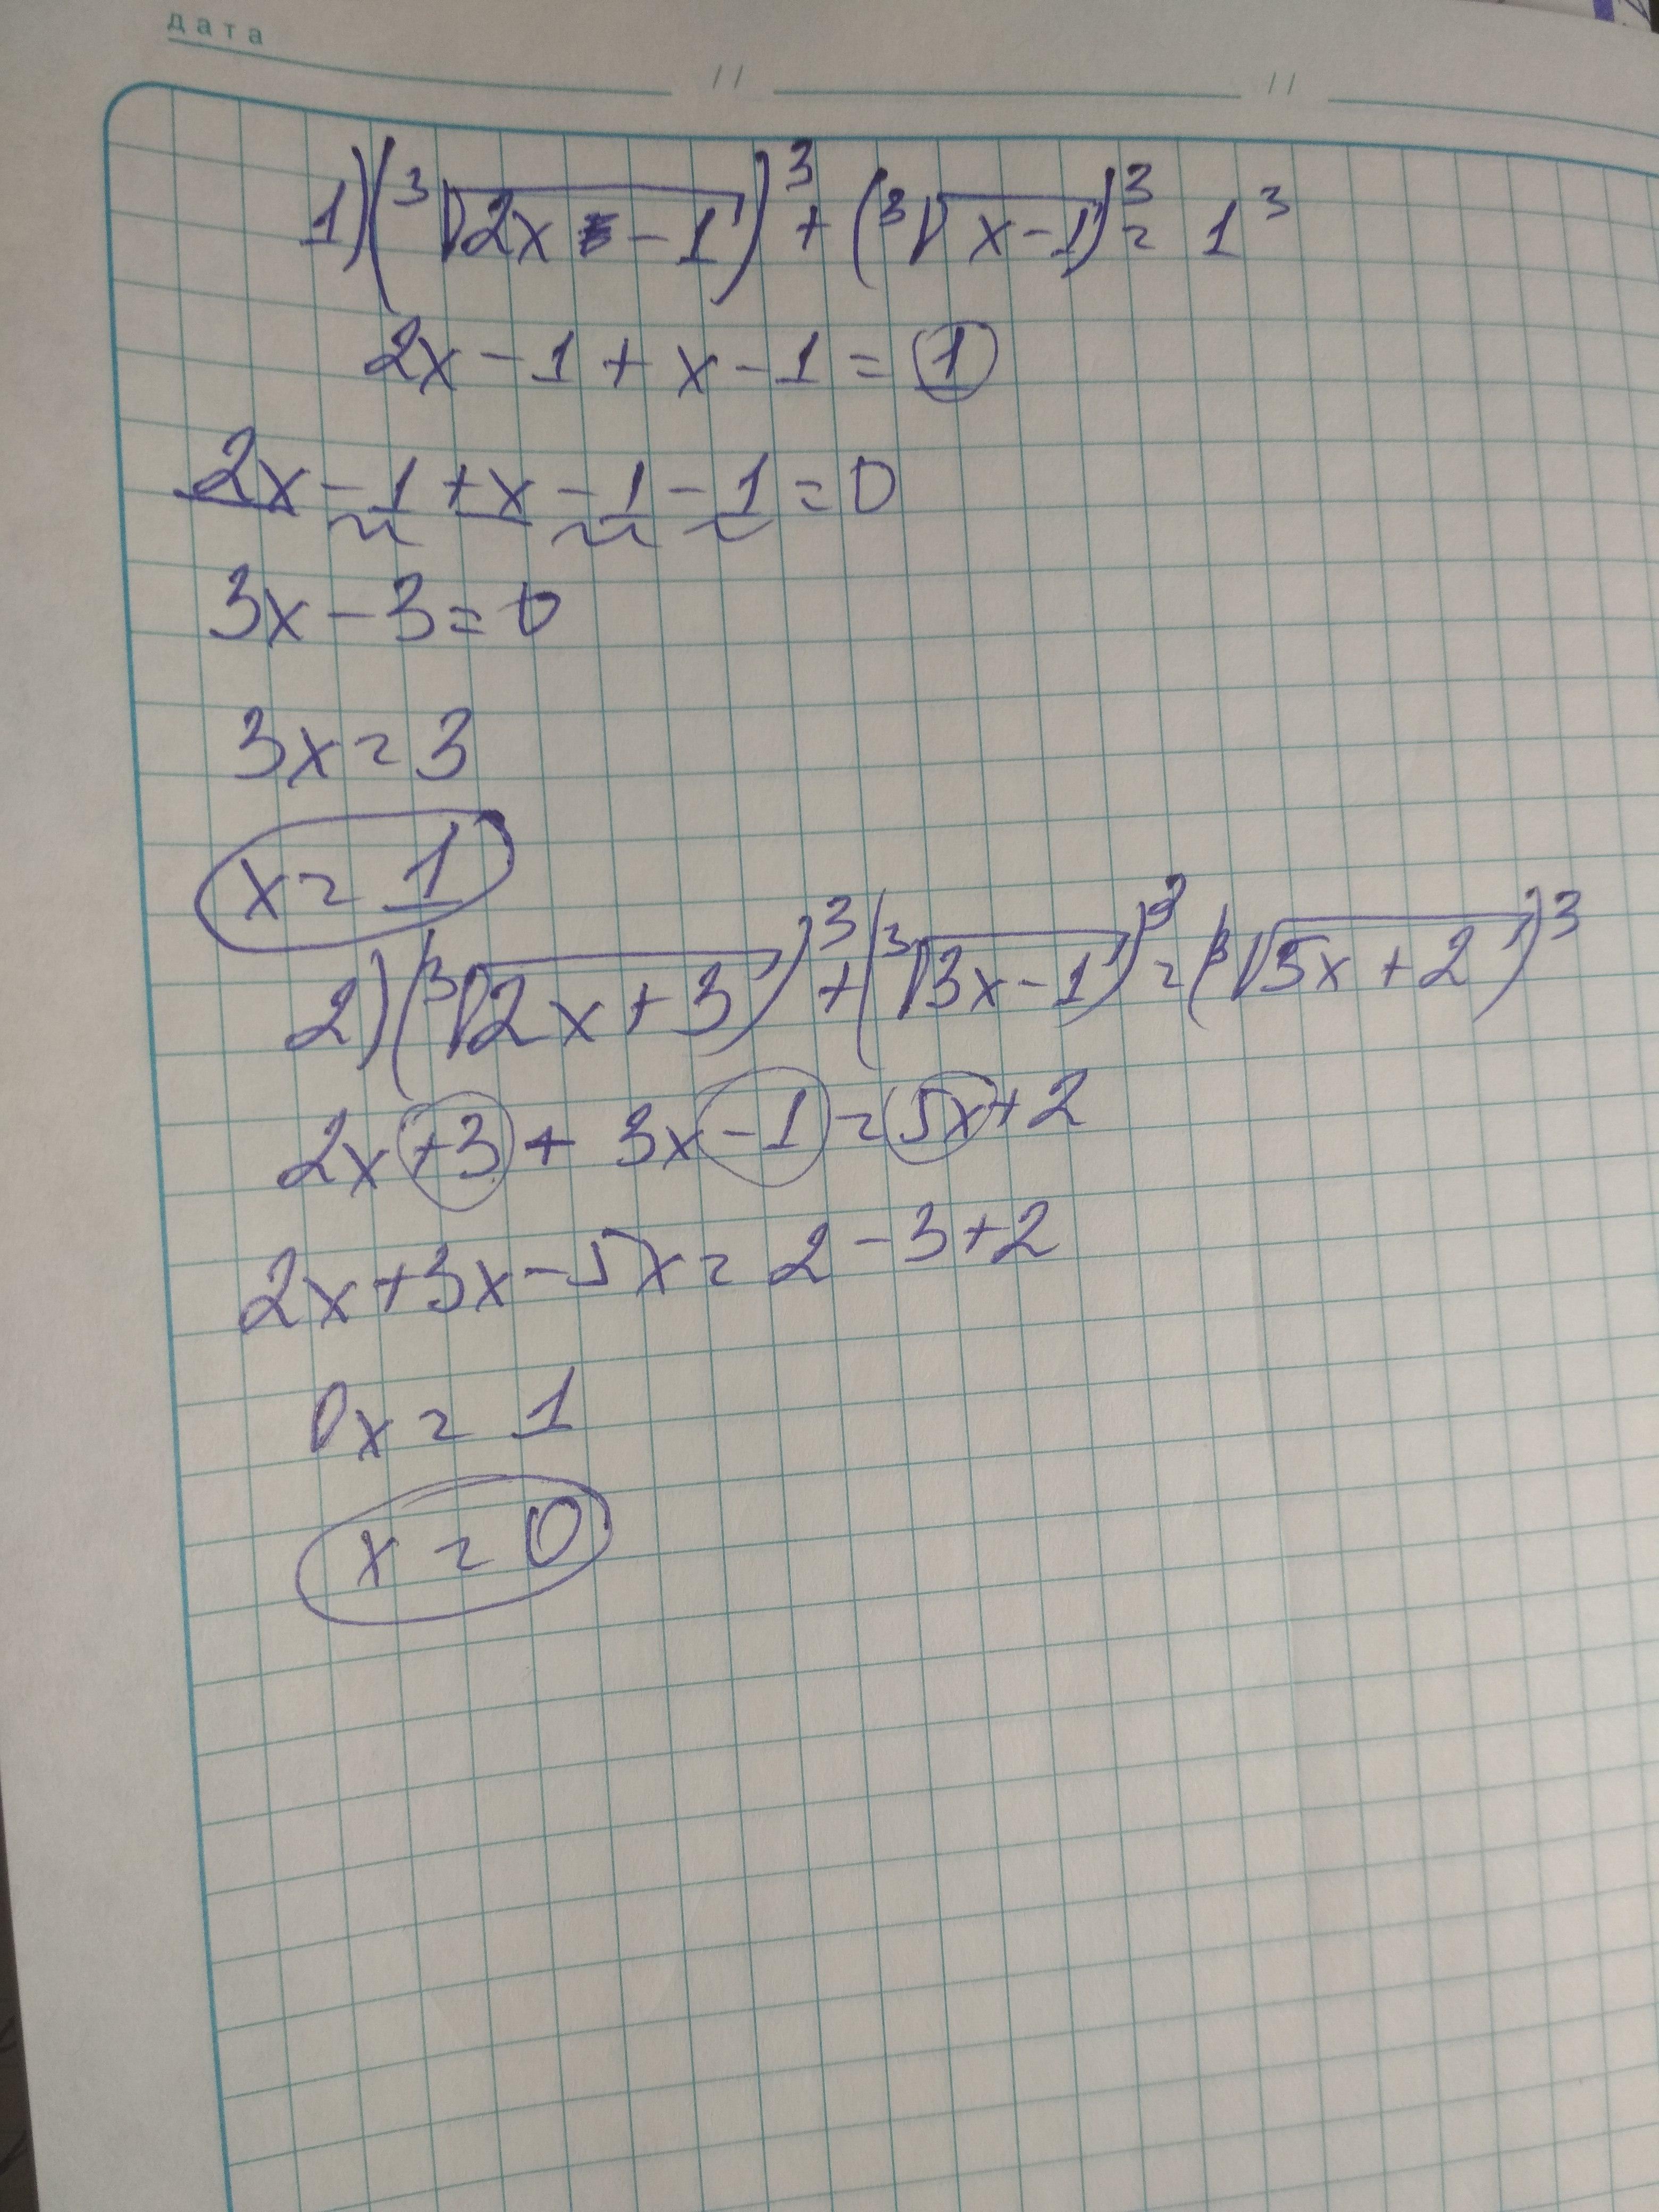 дата
1) (³√(2x - 1))³ + (³√(x-1))³ = 1³
2x - 1 + x - 1 = 1
2x - 1 + x - 1 - 1 = 0
3x - 3 = 0
3x = 3
x = 1
2) (³√(2x + 3))³ + (³√(3x - 1))³ = (³√(5x + 2))³
2x + 3 + 3x - 1 = 5x + 2
2x + 3x - 5x = 2 - 3 + 2
0x = 1
x = 0